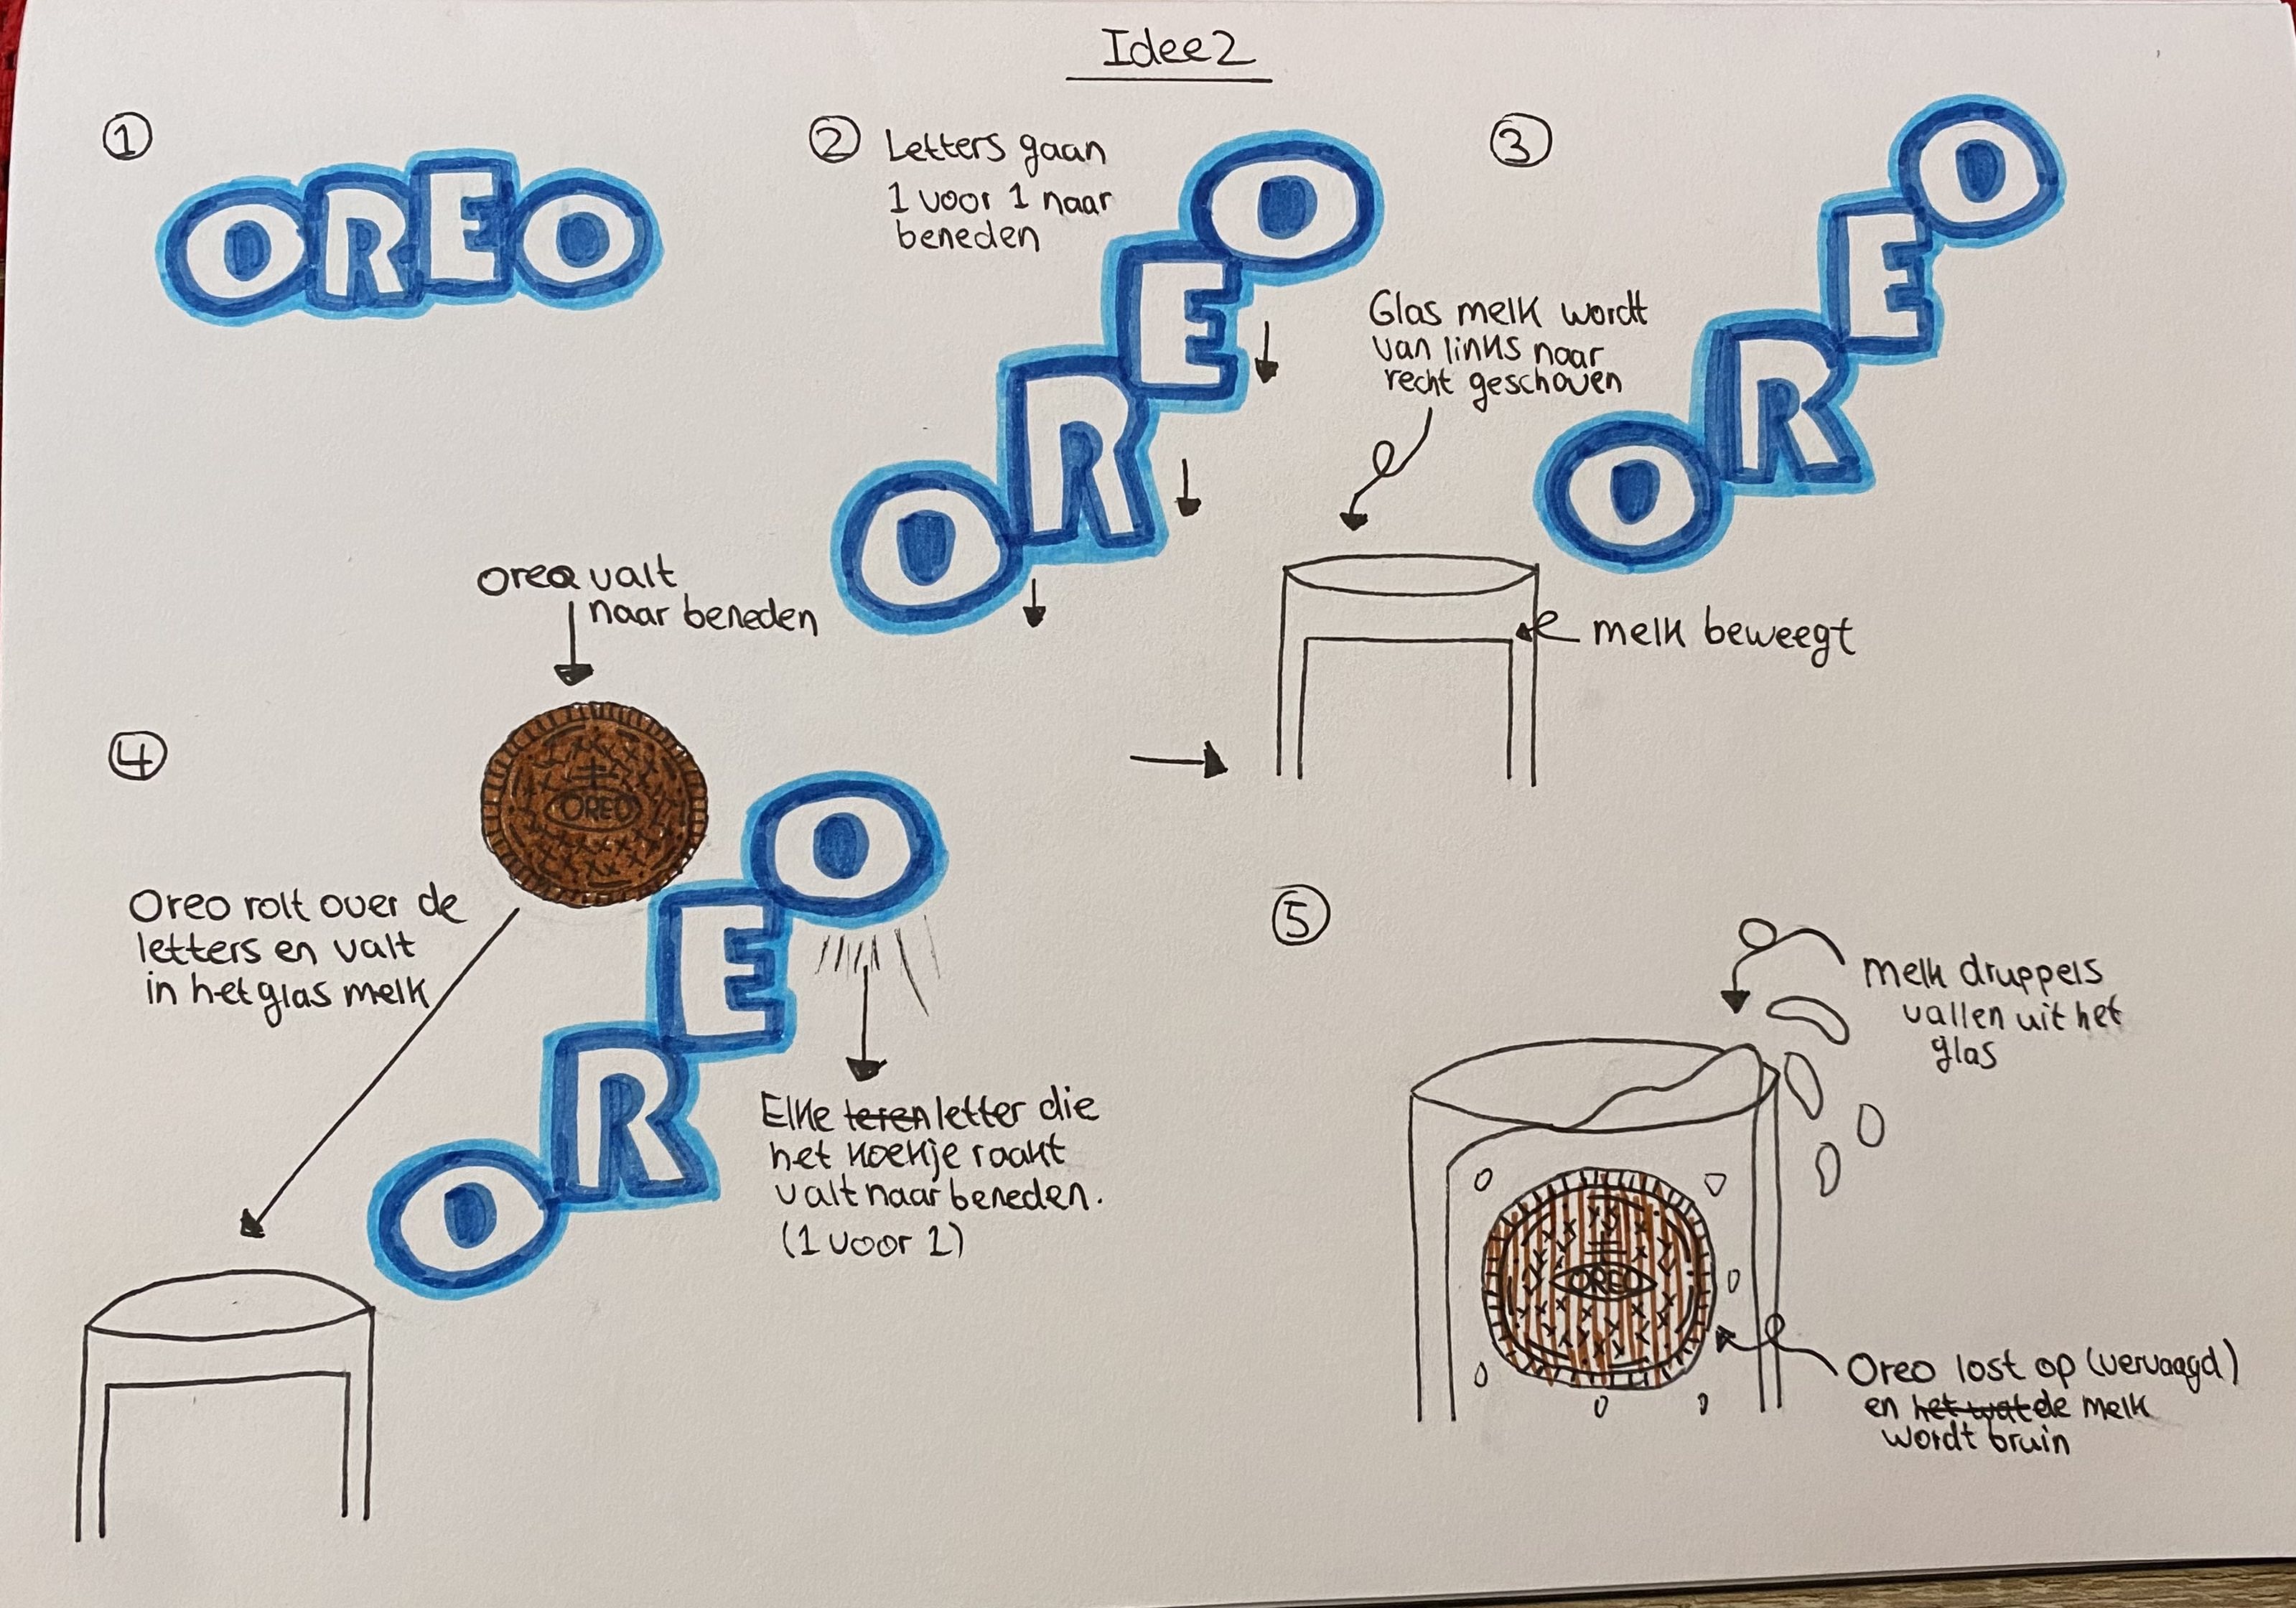 Idee 2
1
OREO
2
Letters gaan
1 voor 1 naar
beneden
OREO
3
OREO
Glas melk wordt
van links naar
recht geschoven
melk beweegt
4
Oreo valt
naar beneden
OREO
OREO
Oreo rolt over de
letters en valt
in het glas melk
Elke teren letter die
het koekje raakt
valt naar beneden.
(1 voor 1)
5
melk druppels
vallen uit het
glas
OREO
Oreo lost op (vervaagd)
en het wat de melk
wordt bruin